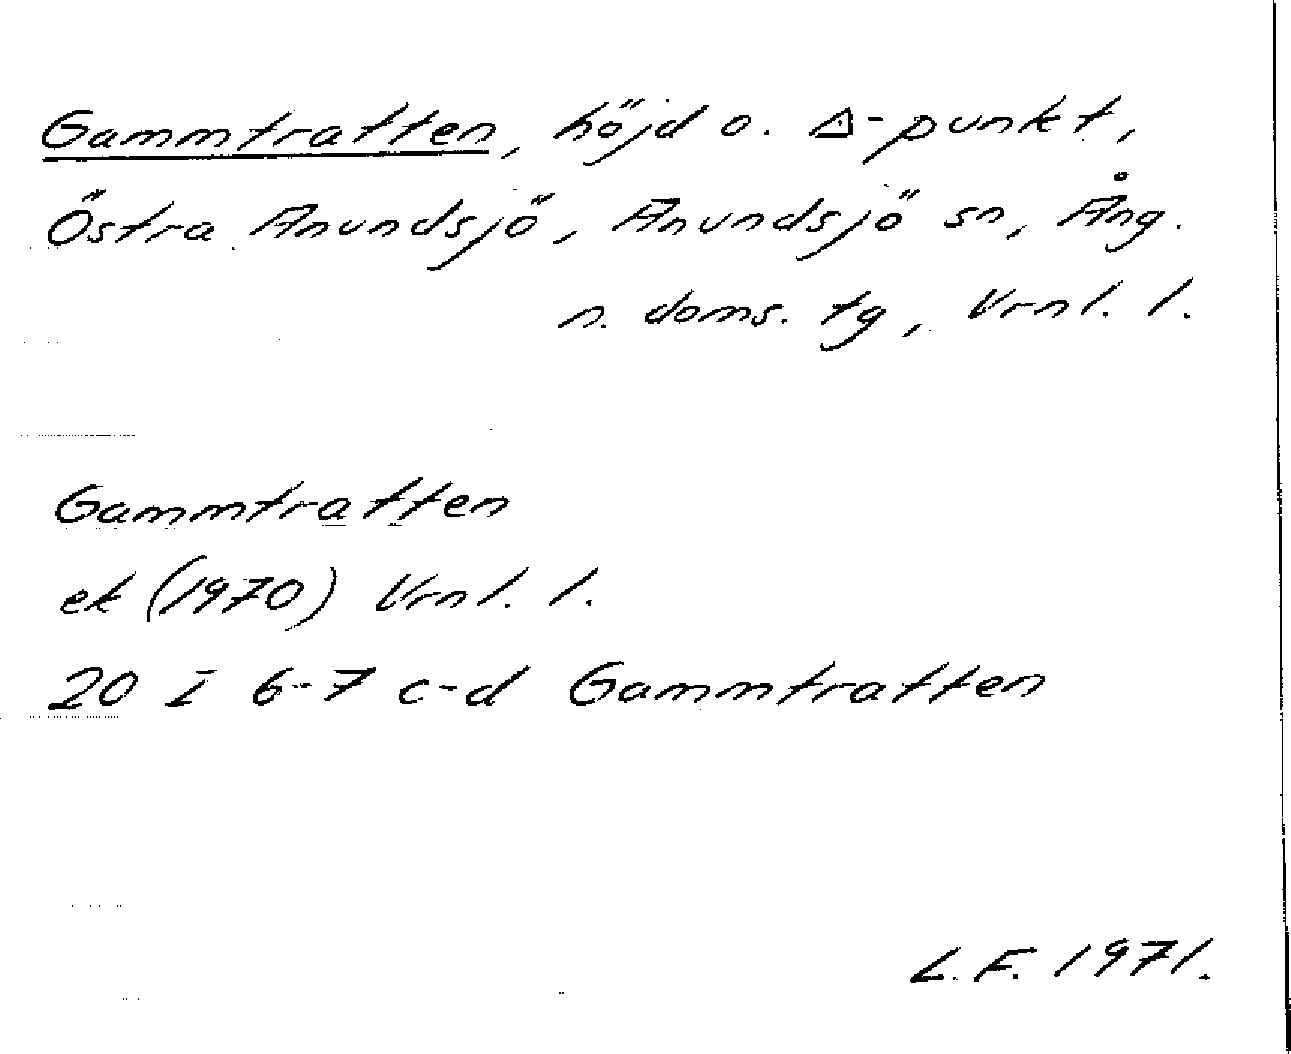 Gammtratten, höjd o. Δ-punkt,
Östra Anundsjö, Anundsjö sn, Ång.
n. doms. tg, Vrnl. l.
Gammtratten
ek (1970) Vrnl. l.
20 I 6-7 c-d Gammtratten
L.F. 1971.